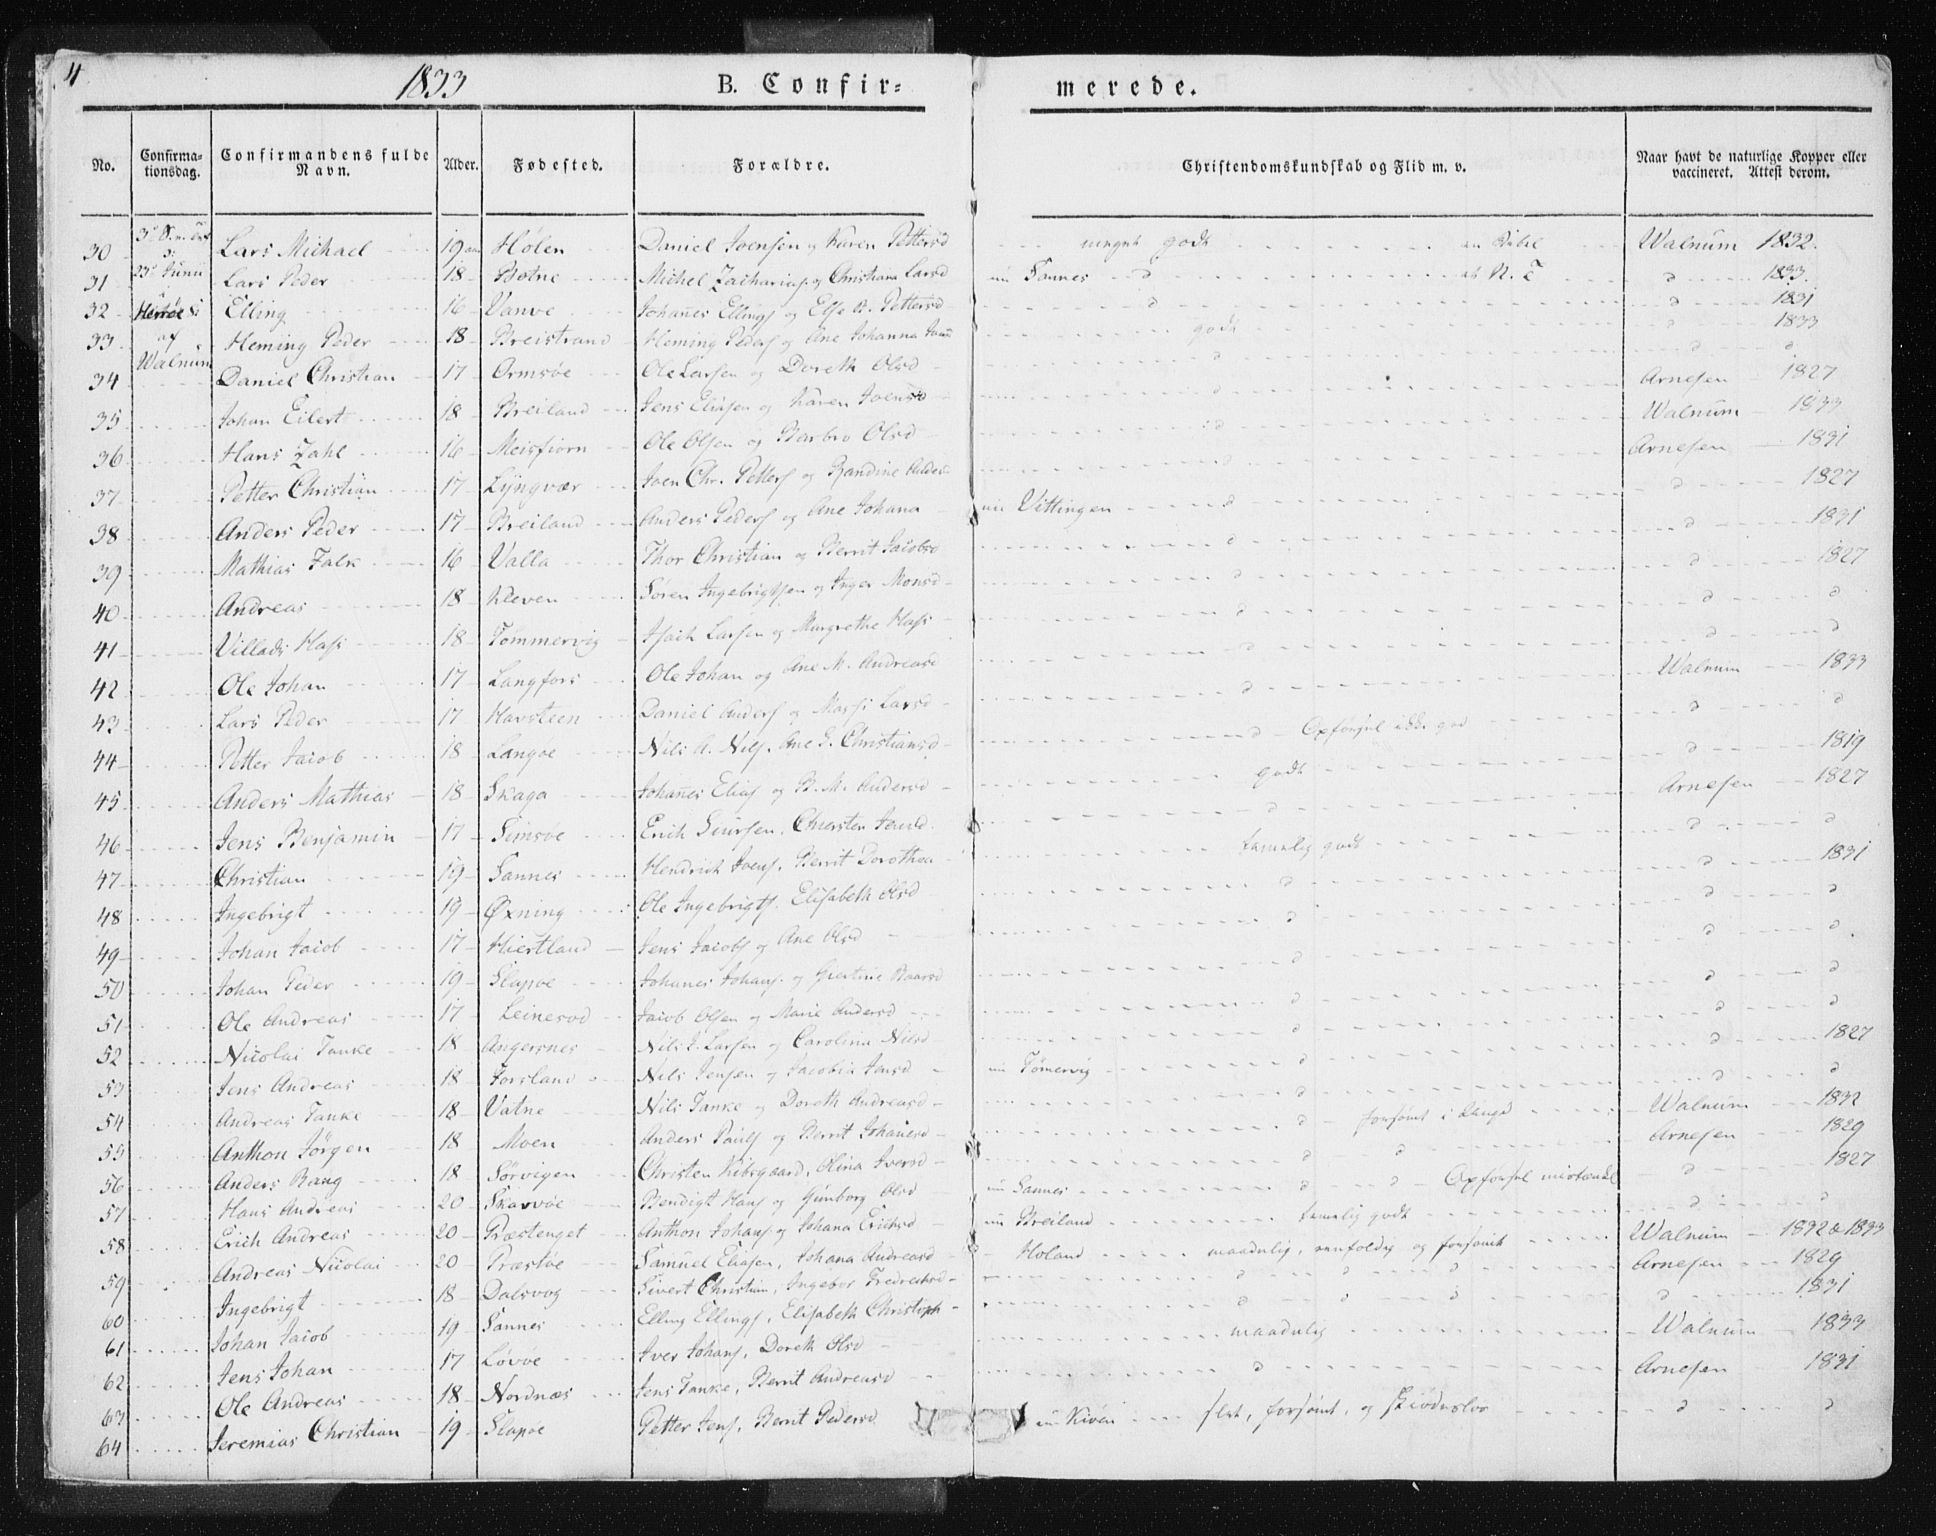 4
1833
B. Confir=
merede.
No.
Confirma-
tionsdag.
Confirmandens fulde
Navn.
Alder.
Fødested.
Forældre.
Christendomskundskab og Flid m. v.
Naar havt de naturlige Kopper eller
vaccineret. Attest derom.
23de Junii
Herröe
af
Walnum
30 Lars Michael 19 Hølen Daniel Joensen og Karen Pettersd meget godt en Bibel Walnum 1832.
31 Lars Peder 18 Botne Michel Zacharias og Christiana Larsd nu Sannes d et N. T d 1833.
32 Elling 16 Vanve Johanes Ellings og Else A. Pettersd d d 1831
33 Heming Peder 18 Breistrand Heming Peders og Ane Johanna godt d 1833
34 Daniel Christian 17 Ormsøe Ole Larsen og Doreth Olsd d d d
35 Johan Eilert 18 Breiland Jens Eliasen og Karen Joensd d Arnesen 1827
36 Hans Zahl 16 Meisfiorn Ole Olsen og Barbro Olsd d Walnum 1833
37 Petter Christian 17 Lyngvær Joen Chr. Petters og Randine Arnesen 1831
38 Anders Peder 17 Breiland Anders Peders og Ane Johana nu Vittingen d d 1827
39 Mathias Falk 16 Valla Thor Christian og Berrit Jacobsd d d 1831
40 Andreas 18 Kleven Søren Ingebrigtsen og Inger Monsd d d 1827
41 Villads Hass 18 Tommervig Isach Larsen og Margrethe Hass d d
42 Ole Johan 17 Langfors Ole Johan og Ane M. Andreasd d d d
43 Lars Peder 17 Havsteen Daniel Anders og Massi Larsd d Walnum 1833
44 Petter Jacob 18 Langøe Nils A. Nils. Ane S. Christiansd d Opførsel ikke god d d
45 Anders Mathias 18 Skaga Johanes Elias og B. M. Andersd godt d 1819
46 Jens Benjamin 17 Simsøe Erich Siursen, Chiersten d Arnesen 1827
47 Christian 19 Sannes Hendrich Joens. Berrit Dorothea temelig godt d d
48 Ingebrigt 19 Øxning Ole Ingebrigts. Elisabeth Olsd d d 1831
49 Johan Jacob 17 Hiertland Jens Jacobs og Ane Olsd d d d
50 Johan Peder 19 Slapøe Johanes Johans. og Giertine Baarsd d d
51 Ole Andreas 17 Leinesod Jacob Olsen og Marie Andersd d d d
52 Nicolai Tanke 18 Angersnes Nils J. Larsen og Carolina Nilsd d d d
53 Jens Andreas 18 Forsland Nils Jensen og Jacobia Jensd nu Tømervig d d 1827
54 Andreas Tanke 18 Vatne Nils Tanke og Doreth Andreasd d d d
55 Anthon Jörgen 18 Moen Anders Pauls og Berrit Johanesd d forsömt i Længe Walnum 1832
56 Anders Bang 18 Sörvigen Christen Kibsgaard, Olina Iversd d d Arnesen 1829
57 Hans Andreas 20 Skavøe Bendigt Hans og Gunborg Olsd nu Sannes d d Opförsel mistænkt d 1827
58 Erich Andreas 20 Præstenget Anthon Johans og Johana Erichsd nu Breiland temelig godt d d
59 Andreas Nicolai 20 Præstøe Samuel Eliasen, Johana Andreasd Holand maadelig, eenfoldig og forsömt Walnum 1832 & 1833
60 Ingebrigt 18 Dalsvog Sivert Christian, Ingebor Fredrechsd d d d Arnesen 1829
61 Johan Jacob 19 Sannes Elling Ellings, Elisabeth Christoph d d d d 1831
62 Jens Johan 17 Løvøe Iver Johans, Doreth Olsd maadelig Walnum 1833
63 Ole Andreas 18 Nordnæs Jens Tanke, Berrit Andreasd d Arnesen 1831
64 Jeremias Christian 19 Slapøe Petter Jens, Berrit Pedersd nu Kiven slet, forsömt, og skiödeslös d d